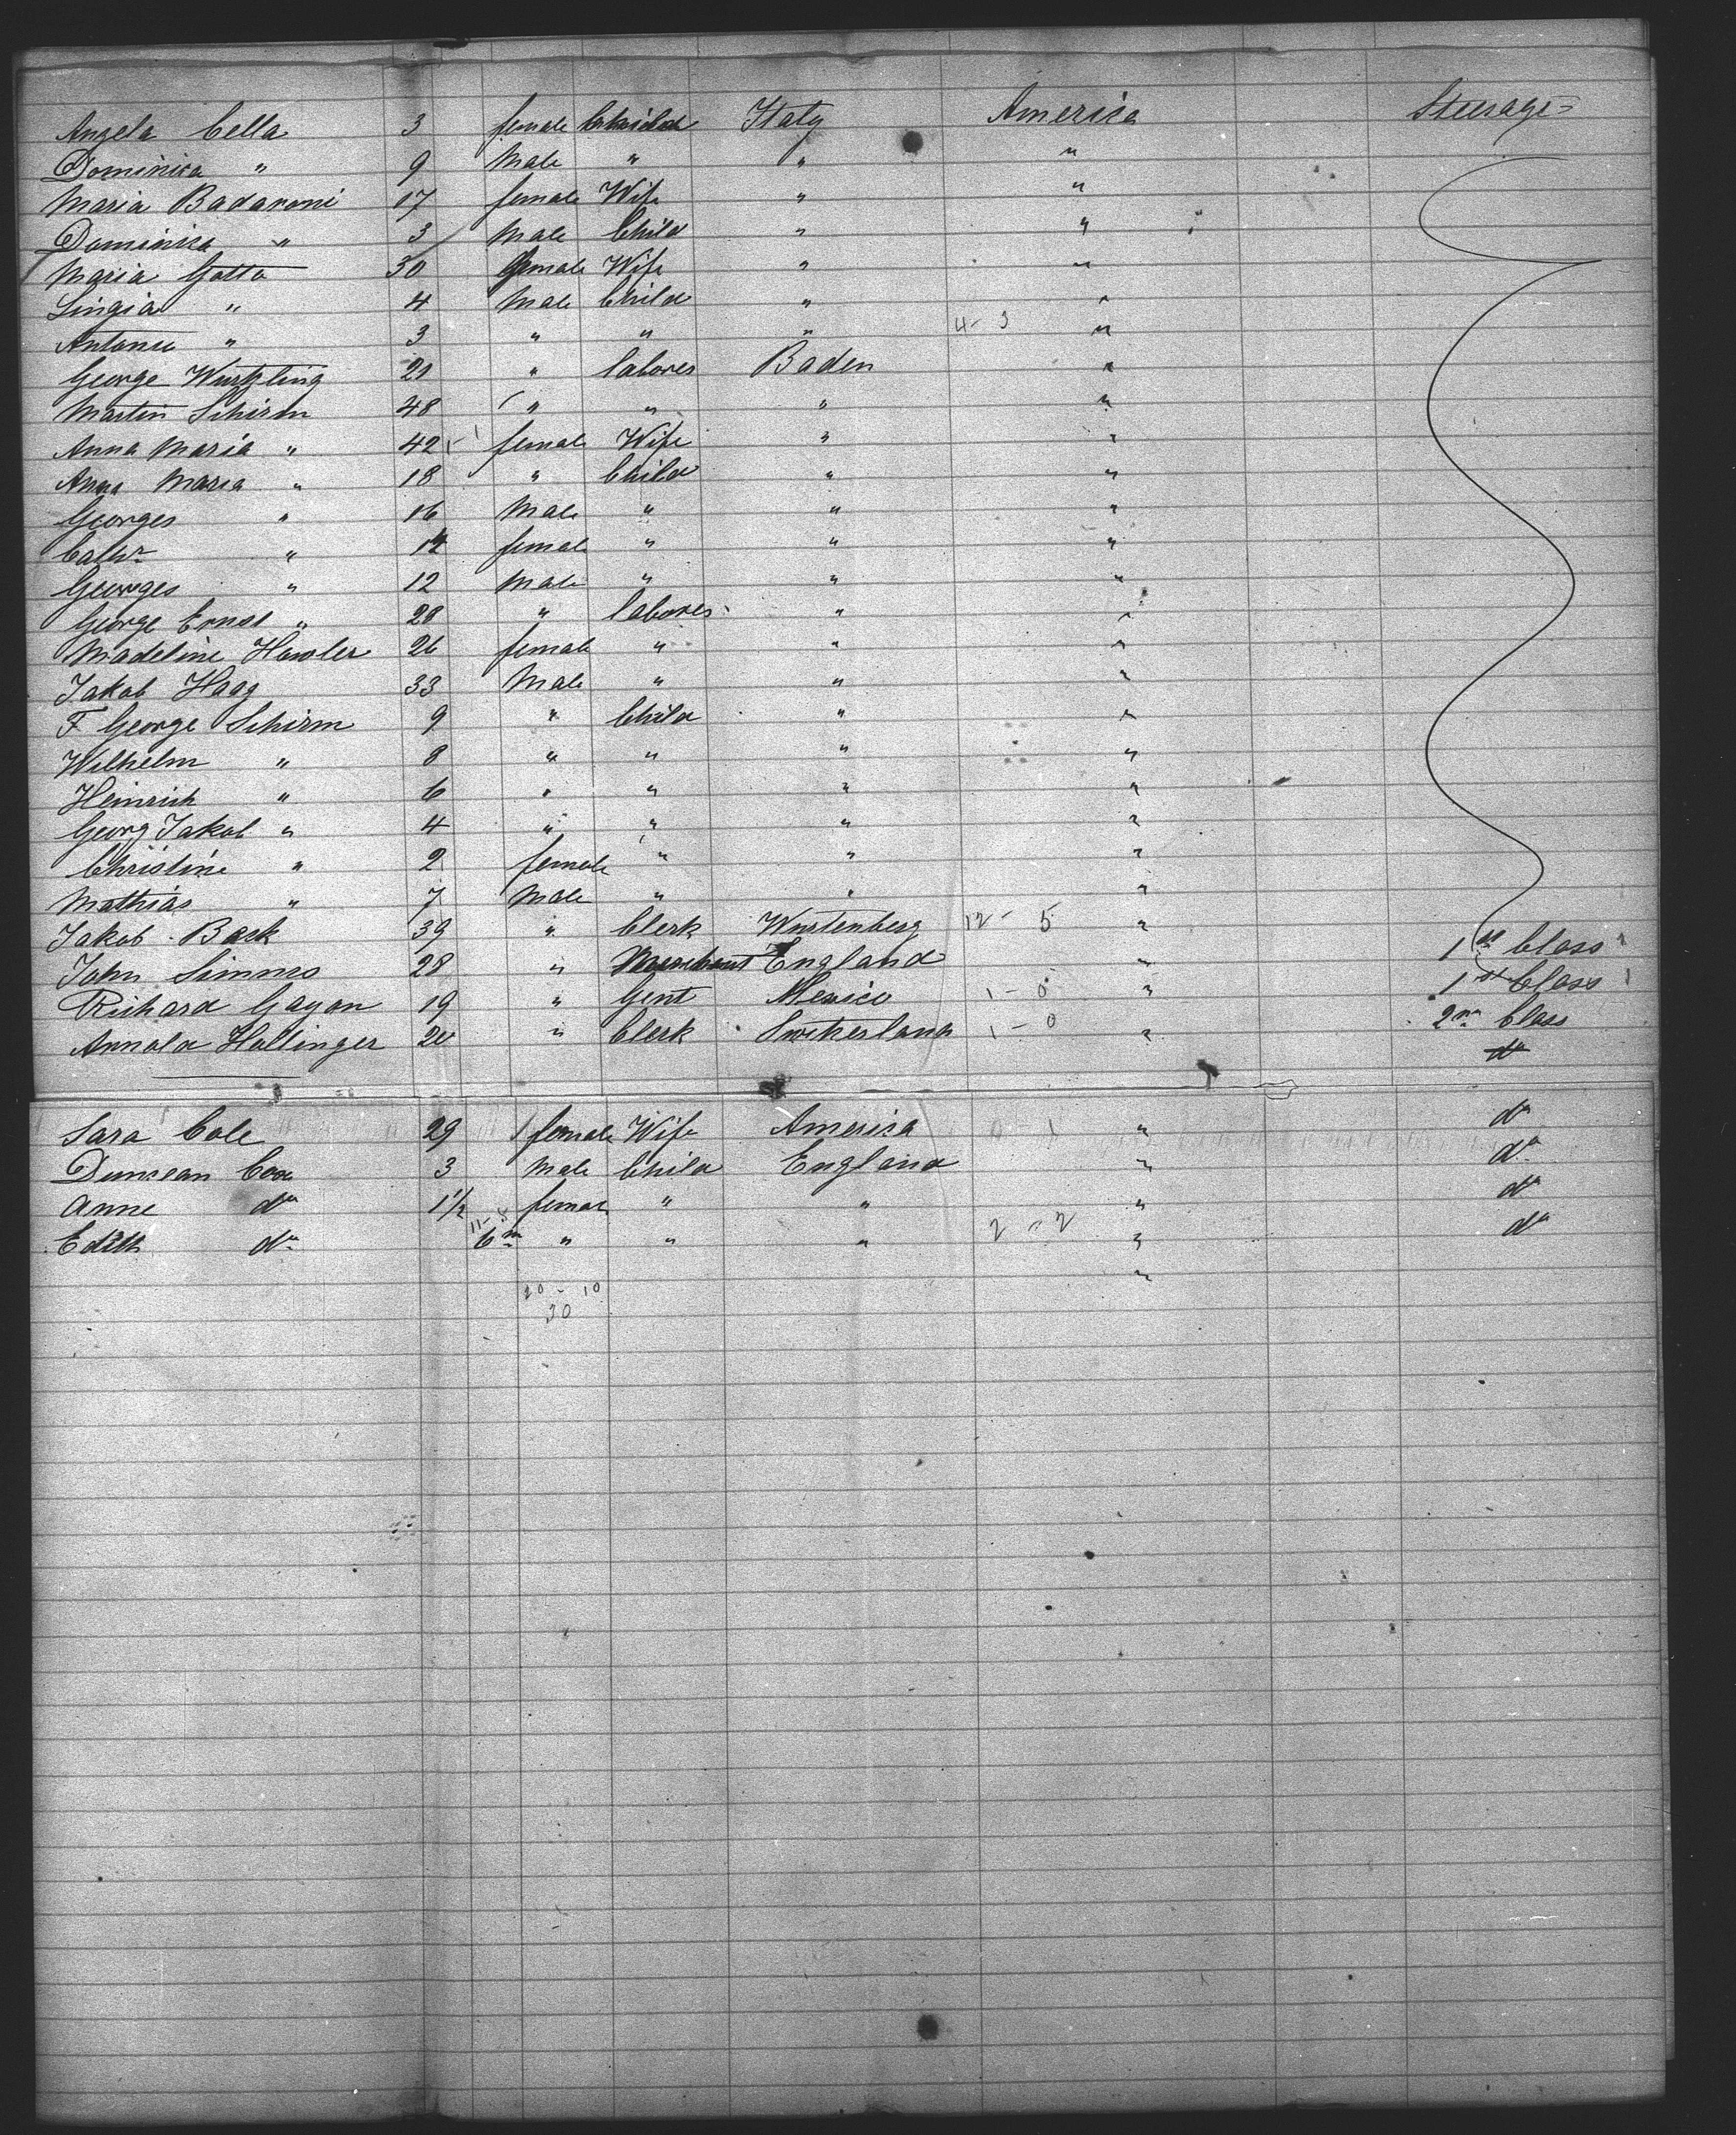 Angela Cella 3 female Child Italy America Steerage
Dominica " 9 Male " " "
Maria Badaroni 17 female Wife " "
Dominica " 3 Male Child " "
Maria Gatto 30 female Wife " "
Lingia " 4 Male Child " "
Antonio " 3 " " " 4 - 3 "
George Wurtzling 21 " labores Baden "
Martin Schirm 48 " " " "
Anna Maria " 42 female Wife " "
Anna Maria " 18 " Child " "
Georges " 16 Male " " "
" female " " "
Georges " 12 Male " " "
George Ernst " 28 " labores " "
Madeline Hawler 26 female " " "
Jakob Haag 33 Male " " "
F George Schirm 9 " Child " "
Wilhelm " 8 " " " "
Heinrich " 6 " " " "
Georg Jakob " 4 " " " "
Christine " 2 female " " "
Mathias " 7 Male " " "
Jakob Back 39 " Clerk Wurtenberg 12 - 5 "
John Simms 28 " Merchant England " 1st Class
Richard Gayon 19 " Gent Mexico 1 - 0 " 1st Class
Arnold Hollinger 20 " Clerk Switzerland 1 - 0 " 2nd Class
do
Sara Cole 29 female Wife America 0 - 1 " do
Duncean Cox 3 Male Child England " do
Anne do 1 1/2 female " " " do
Edith do 6m " " " 2 - 2 " do
"
20 - 10
30